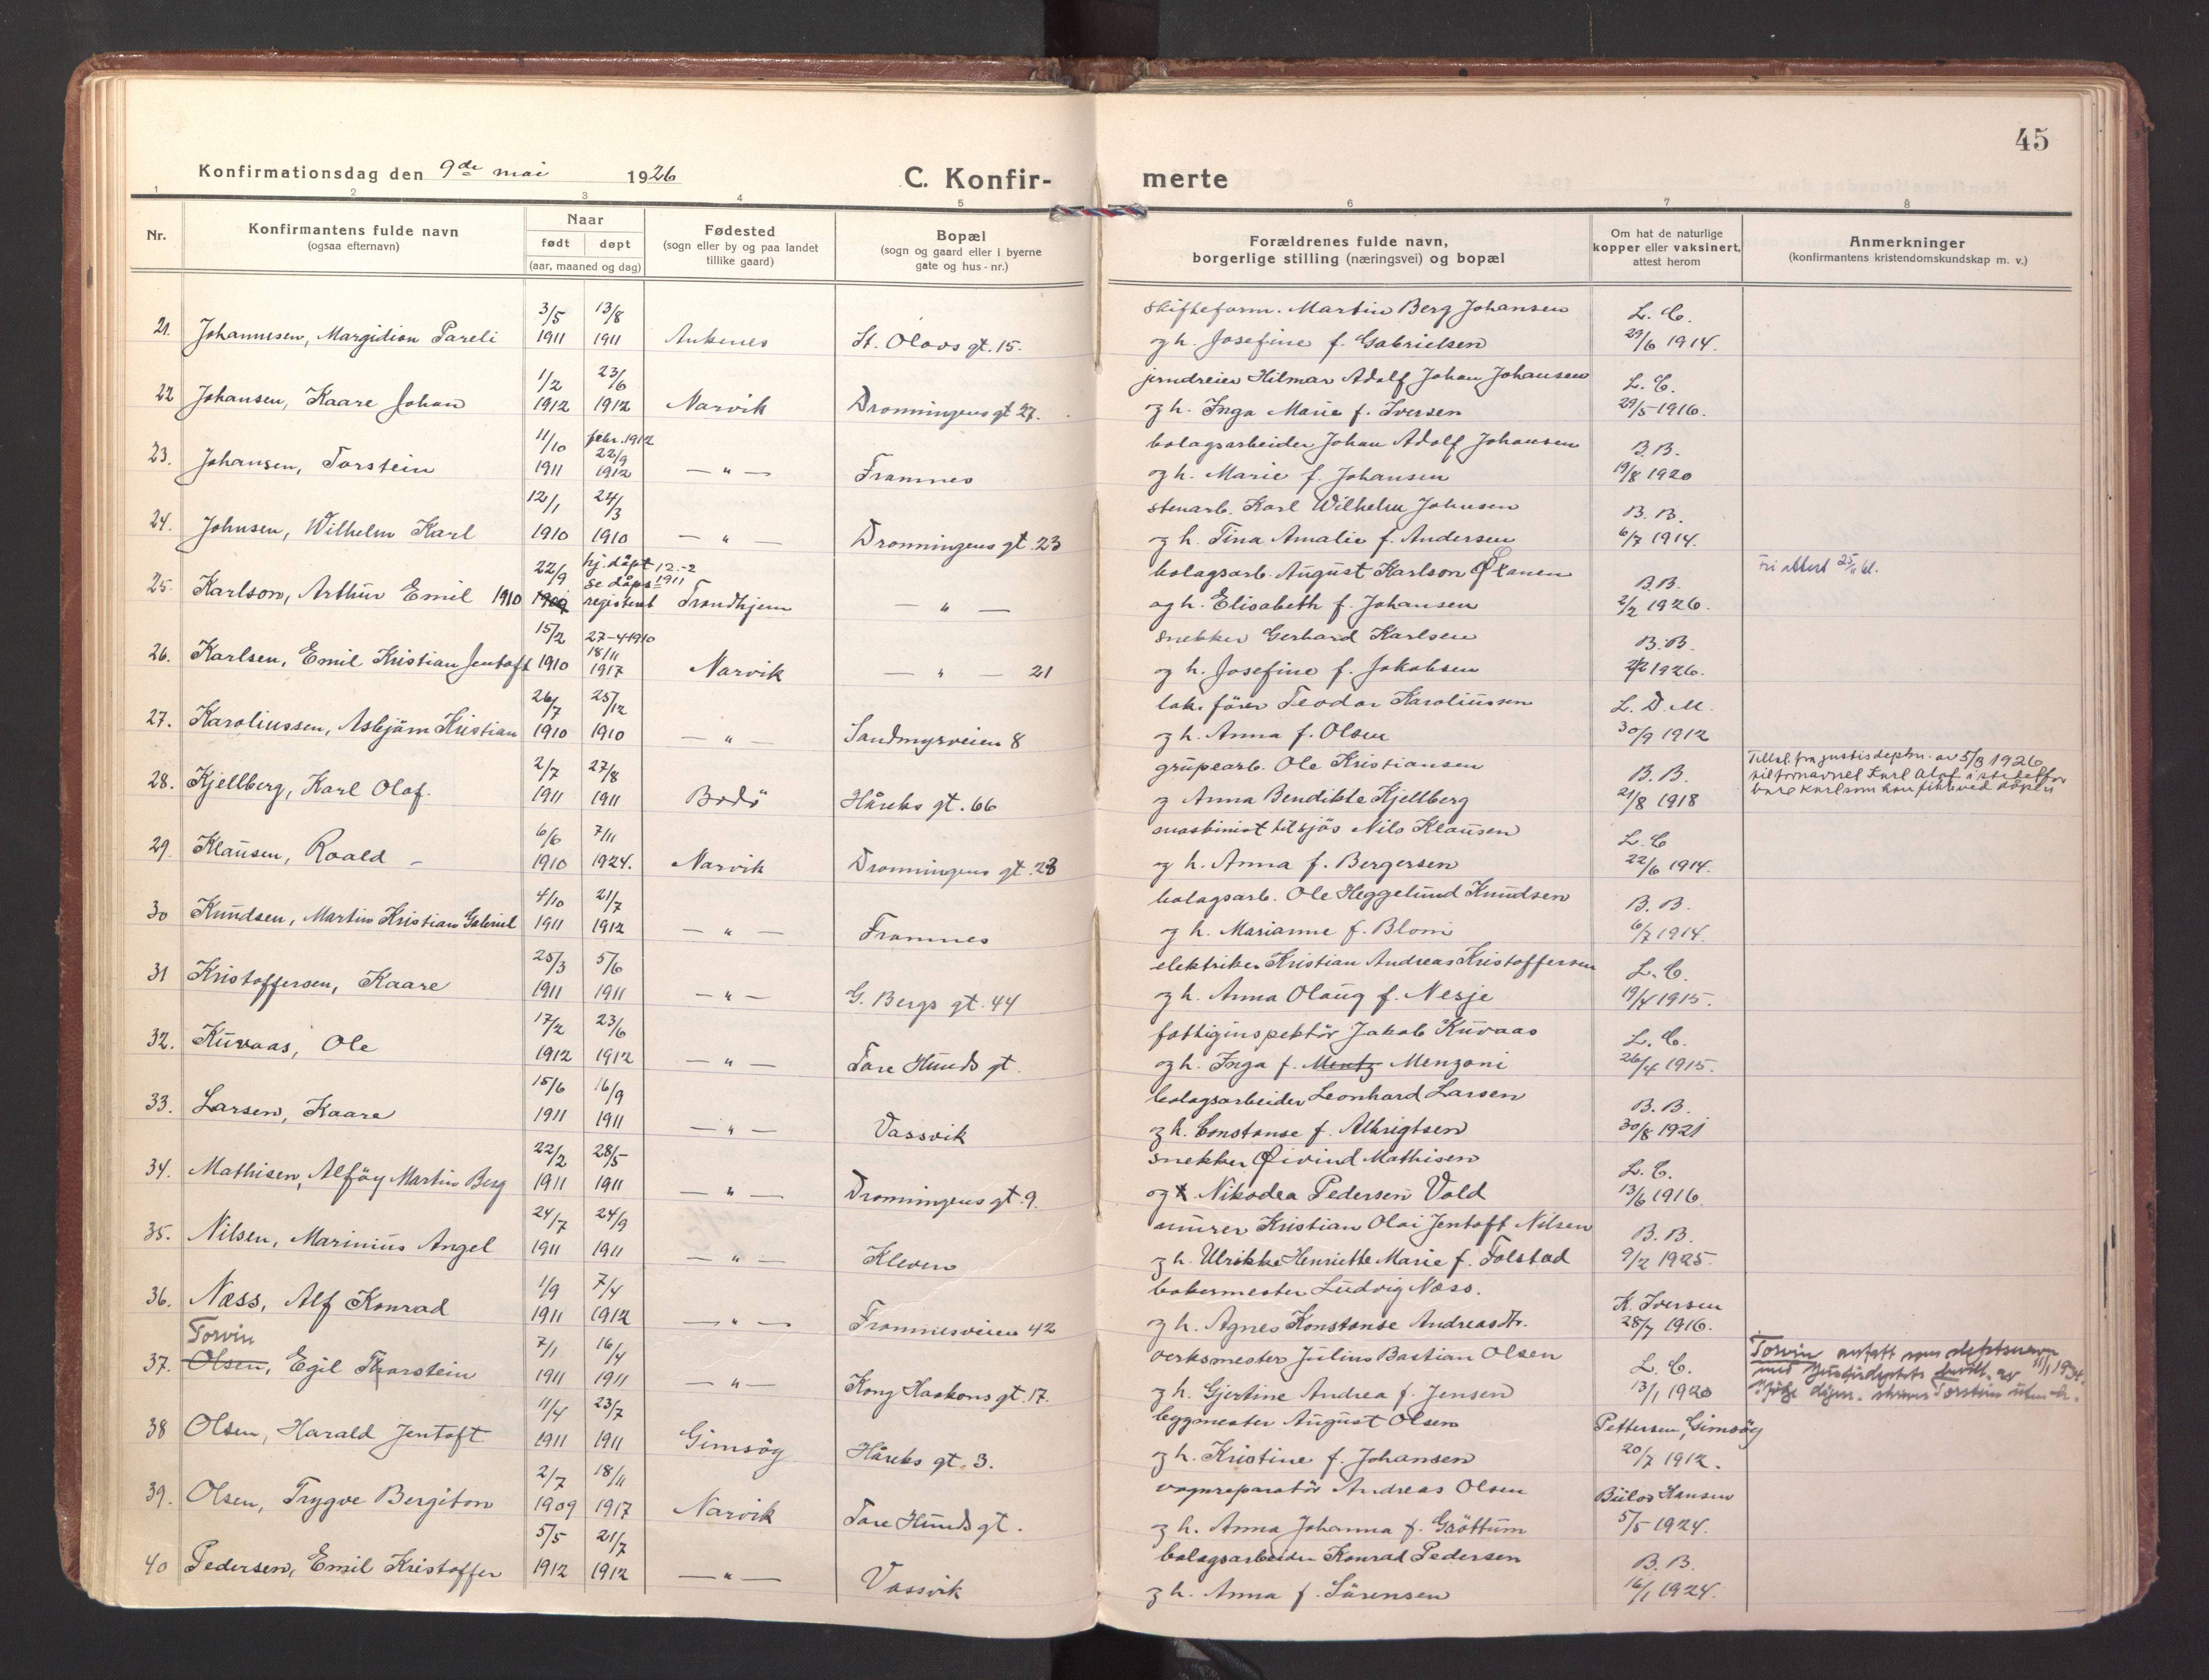 45
Konfirmationsdag den 9de mai 1926 C. Konfir- merte
1 2 3 4 5 6 7 8
Nr. Konfirmantens fulde navn (ogsaa efternavn) Naar født døpt (aar, maaned og dag) Fødested (sogn eller by og paa landet tillike gaard) Bopæl (sogn og gaard eller i byerne gate og hus-nr.) Forældrenes fulde navn, borgerlige stilling (næringsvei) og bopæl Om hat de naturlige kopper eller vaksinert, attest herom Anmerkninger (konfirmantens kristendomskundskap m. v.)
3/5 13/8 skifteform. Martin Berg Johansen L. C.
21. Johannesen, Margidion Pareli 1911 1911 Ankenes St. Olavs gt. 15. og h. Josefine f. Gabrielsen 29/6 1914.
1/2 23/6 jerndreier Hilmar Adolf Johan Johansen L. C.
22 Johansen, Kaare Johan 1912 1912 Narvik Dronningens gt 27. og h. Inga Marie f. Iversen 29/5 1916.
11/10 febr. 1912 22/9 bolagsarbeider Johan Adolf Johansen B. B.
23. Johansen, Torstein 1911 1912 — " — Framnes og h. Marie f. Johansen 19/8 1920
12/1 24/3 stenarb. Karl Wilhelm Johnsen B. B.
24. Johnsen, Wilhelm Karl 1910 1910 — " — Dronningens gt. 23 og h. Tina Amalie f. Andersen 6/7 1914.
22/9 hj. døpt 12-2 1911 se dåps bolagsarb. August Karlson B.B. Fri attest 25/11
25. Karlson, Arthur Emil 1910 1909 registeret Trondhjem — " — og h. Elisabeth f. Johansen 2/2 1926.
15/2 27-4-1910 18/11 snekker Gerhard Karlsen B.B.
26. Karlsen, Emil Kristian Jentoft 1910 1917 Narvik — " — 21 og h. Josefine f. Jakobsen 2/2 1926.
26/7 25/12 lok. förer Teodor Karoliussen L. D. M.
27. Karoliussen, Asbjörn Kristian 1910 1910 — " — Sandmyrveien 8 og h. Anna f. Olsen 30/9 1912
2/7 27/8 grupearb. Ole Kristiansen B. B. Tillat. fra justisdeptm. av 5/8 1926
28. Kjellberg, Karl Olaf. 1911 1911 Bodö Håreks gt. 66 og Anna Bendikte Kjellberg 21/8 1918 til fornavnet Karl Olaf istedetfor bare Karl som han fikk ved dåpen
6/6 7/11 maskinist tilsjøs Nils Klausen L. C
29. Klausen, Roald – 1910 1924. Narvik Dronningens gt. 23 og h. Anna f. Bergersen 22/6 1914.
4/10 21/7 bolagsarb. Ole Heggelund Knudsen B. B.
30 Knudsen, Martin Kristian Gabriel 1911 1912 — " — Framnes og h. Marianne f. Blom 6/7 1914.
25/3 5/6 elektriker Kristian Andreas Kristoffersen L. C.
31 Kristoffersen, Kaare 1911 1911 — " — G. Bergs gt. 44 og h. Anna Olaug f. Nesje 19/4 1915.
17/2 23/6 fattiginspektör Jakob Kuvaas L. C.
32. Kuvaas, Ole 1912 1912 — " — Tore Hunds gt. og h. Inga f. Mentz Menzoni 26/4 1915.
15/6 16/9 bolagsarbeider Leonhard Larsen B. B.
33. Larsen, Kaare 1911 1911 — " — Vassvik og h. Constanse f. Albrigtsen 30/8 1921
22/2 28/5 snekker Øivind Mathisen L. C.
34. Mathisen, Alföy Martin Berg 1911 1911 — " — Dronningens gt. 9. og Nikodea Pedersen Vold 13/6 1916
24/7 24/9 murer Kristian Olai Jentoft Nilsen B. B.
35. Nilsen, Marinius Angel 1911 1911 — " — Kleven og h. Ulrikke Henriette Marie f. Tolstad 9/2 1925.
1/9 7/4 bakermester Ludvig Næss. K. Iversen
36. Næss, Alf Konrad 1911 1912 — " — Framnesveien 42 og h. Agnes Konstanse Andreasdtr. 28/7 1916.
Torvin 7/1 16/4 verksmester Julius Bastian Olsen L. C. Torvin antatt som slektsnavn
37. Olsen, Egil Thorstein 1911 1911 — " — Kong Haakons gt. 17. og h. Gjertine Andrea f. Jensen 13/1 1920 med Justisdeptets bevill. av 11/1 1934. Ifölge skrives Torstein uten h.
11/4 23/7 byggmester August Olsen Pettersen, Gimsöy
38 Olsen, Harald Jentoft 1911 1911 Gimsöy Håreks gt. 3. og h. Kristine f. Johansen 20/7 1912.
2/7 18/11 vognreparatör Andreas Olsen Bülow Hansen
39. Olsen, Trygve Bergiton 1909 1917 Narvik Tore Hunds gt. og h. Anna Johanna f. Gröttum 5/5 1924.
5/5 21/7 bolagsarbeider Konrad Pedersen B. B.
40 Pedersen, Emil Kristoffer 1912 1912 — " — Vassvik og h. Anna f. Sörensen 16/1 1924.